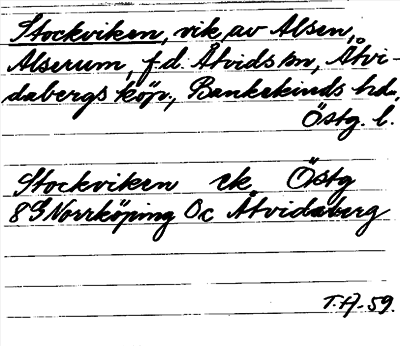 Stockviken, vik av Alsen,
Alserum, f.d. Åtvids sn, Åtvi-
dabergs köp., Bankekinds hd.,
Östg. l.
Stockviken ek Östg
8G Norrköping Oc Åtvidaberg
T.A. 59.